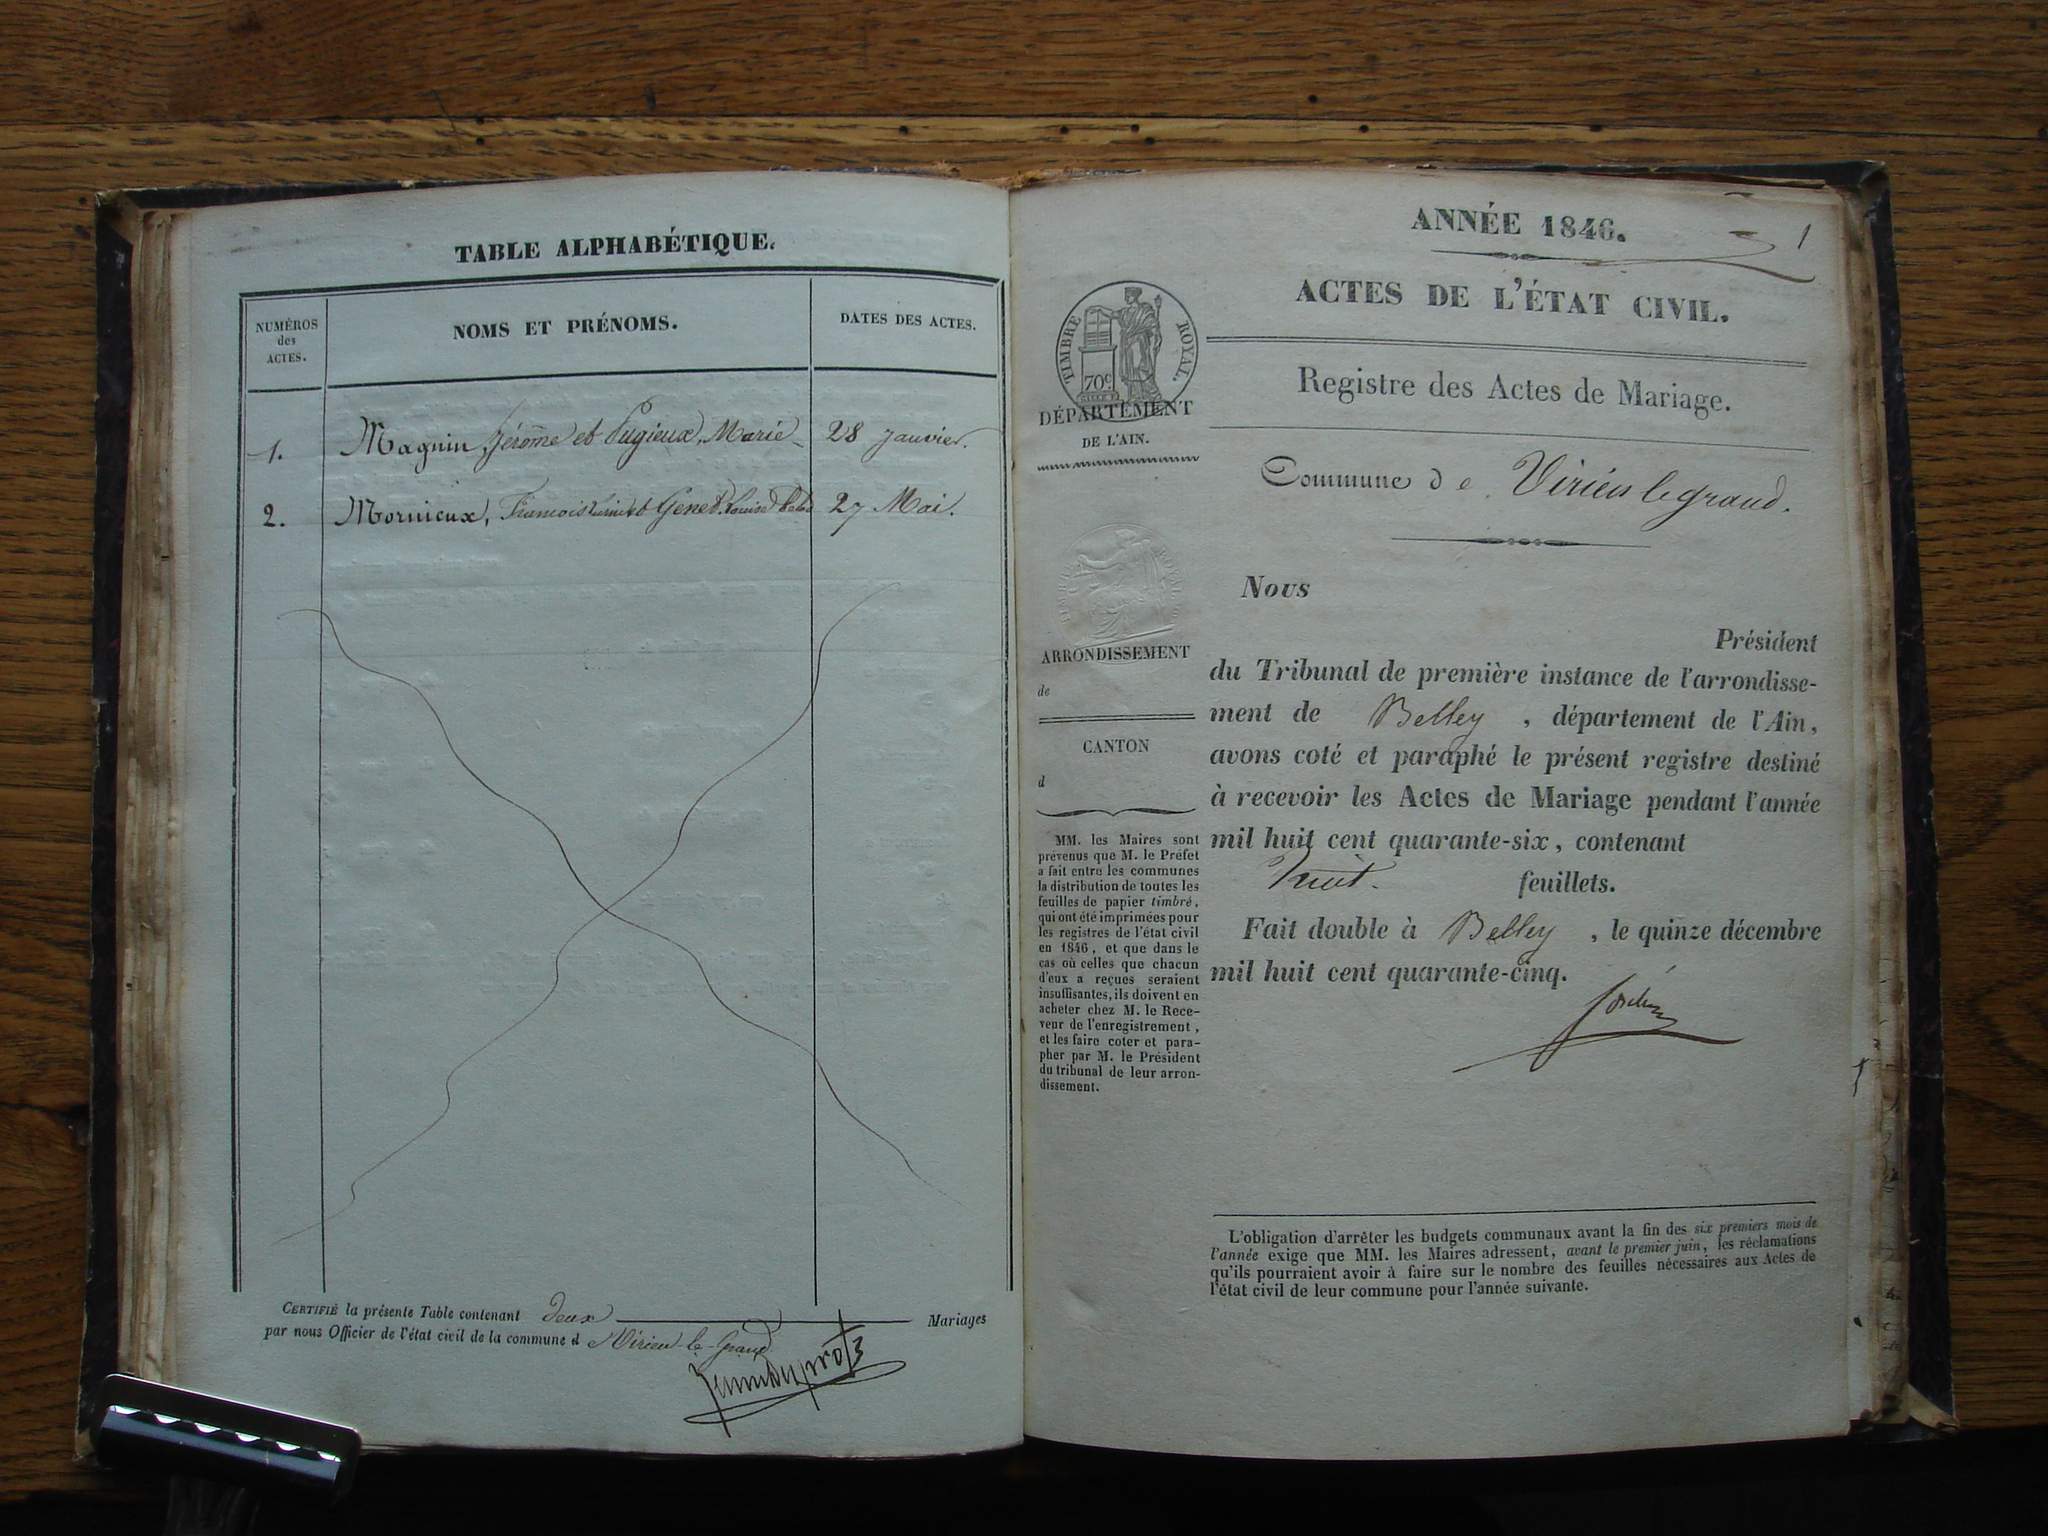 TABLE ALPHABÉTIQUE.
NUMÉROS
des
ACTES.
NOMS ET PRÉNOMS.
DATES DES ACTES.
1. Magnin, Jérôme et Pugieux, Marie 28 janvier.
2. Mornieux, François et Genet, Louise 27 Mai.
CERTIFIÉ la présente Table contenant deux Mariages
par nous Officier de l'état civil de la commune de Virieu-le-Grand
ANNÉE 1846.
1
ACTES DE L'ÉTAT CIVIL.
TIMBRE ROYAL.
70c
DÉPARTEMENT
DE L'AIN.
Registre des Actes de Mariage.
Commune de Virieu le grand.
ARRONDISSEMENT
de
CANTON
d
MM. les Maires sont
prévenus que M. le Préfet
a fait entre les communes
la distribution de toutes les
feuilles de papier timbré,
qui ont été imprimées pour
les registres de l'état civil
en 1846, et que dans le
cas où celles que chacun
d'eux a reçues seraient
insuffisantes, ils doivent en
acheter chez M. le Rece-
veur de l'enregistrement,
et les faire coter et para-
pher par M. le Président
du tribunal de leur arron-
dissement.
Nous
Président
du Tribunal de première instance de l'arrondisse-
ment de Belley, département de l'Ain,
avons coté et paraphé le présent registre destiné
à recevoir les Actes de Mariage pendant l'année
mil huit cent quarante-six, contenant
huit. feuillets.
Fait double à Belley, le quinze décembre
mil huit cent quarante-cinq.
L'obligation d'arrêter les budgets communaux avant la fin des six premiers mois de
l'année exige que MM. les Maires adressent, avant le premier juin, les réclamations
qu'ils pourraient avoir à faire sur le nombre des feuilles nécessaires aux Actes de
l'état civil de leur commune pour l'année suivante.